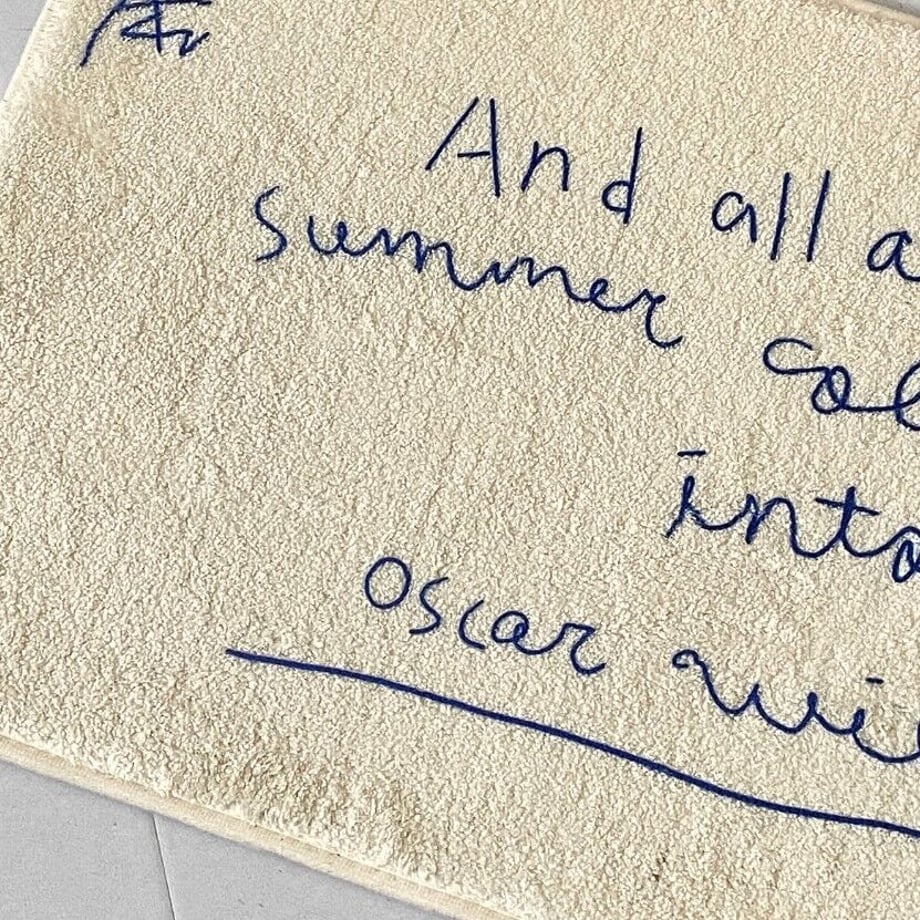 And all a
summer col
into
Oscar